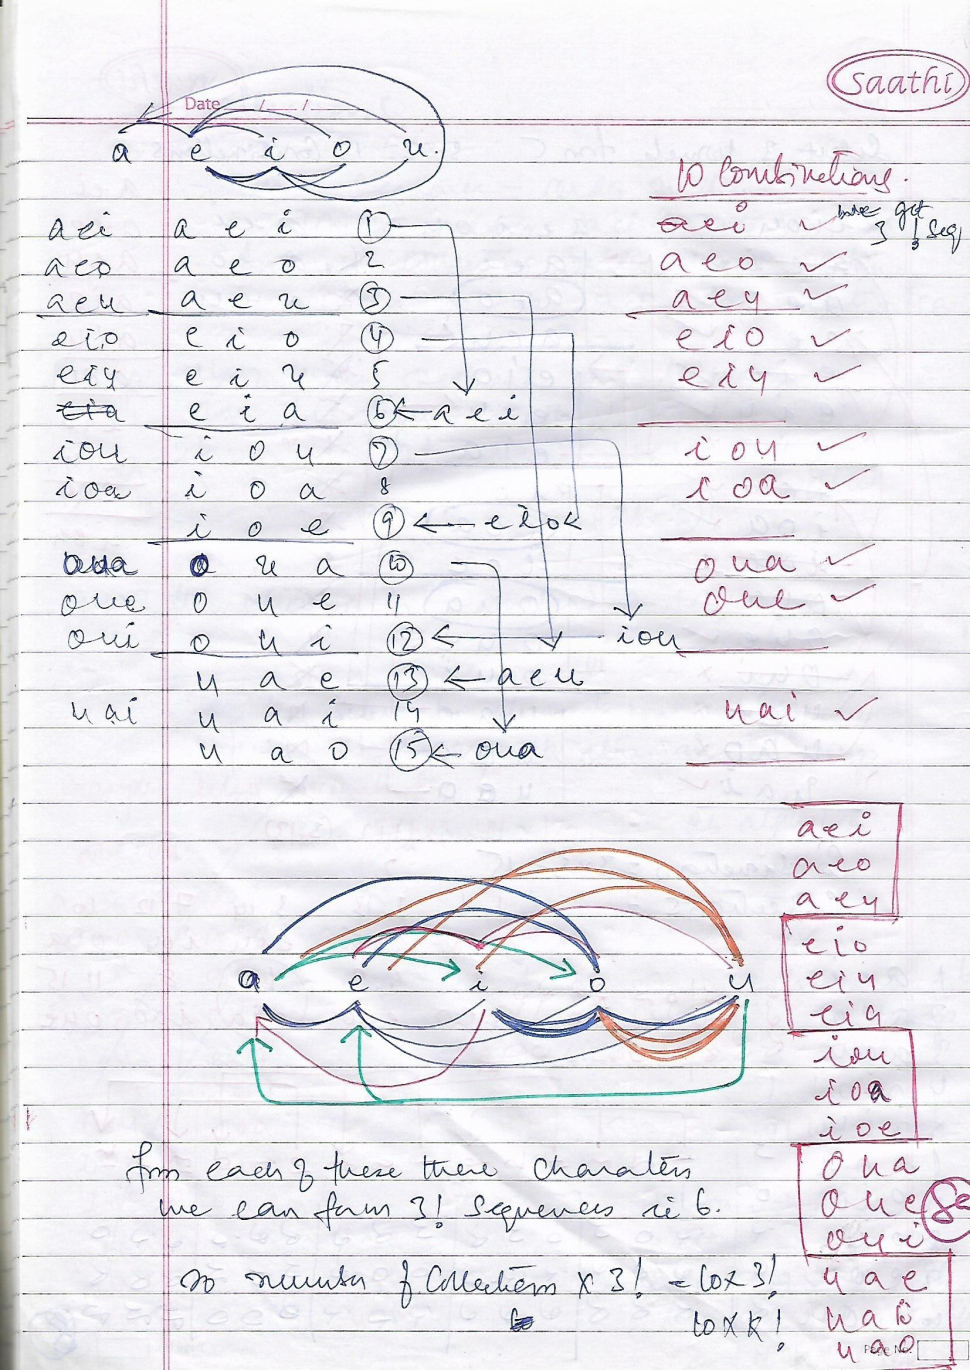 Saathi
Date / /
a e i o u.
10 Combinations.
aei a e i 1 aei ✓ we get 3! Seq
aeo a e o 2 aeo ✓
aeu a e u 3 aeu ✓
eio e i o 4 eio ✓
eiu e i u 5 eiu ✓
eia e i a 6 ← aei
iou i o u 7 iou ✓
ioa i o a 8 ioa ✓
i o e 9 ← eio
oua o u a 10 oua ✓
oue o u e 11 oue ✓
oui o u i 12 ← iou
u a e 13 ← aeu
uai u a i 14 uai ✓
u a o 15 ← oua
aei
aeo
aeu
eio
a e i o u
eiu
eia
iou
ioa
ioe
from each of these three charaters
oua
we can form 3! Sequences ie 6.
oue Se
oui
so number of Collections x 3! = 10x3!
uae
10xk!
uai
uao
Page No.